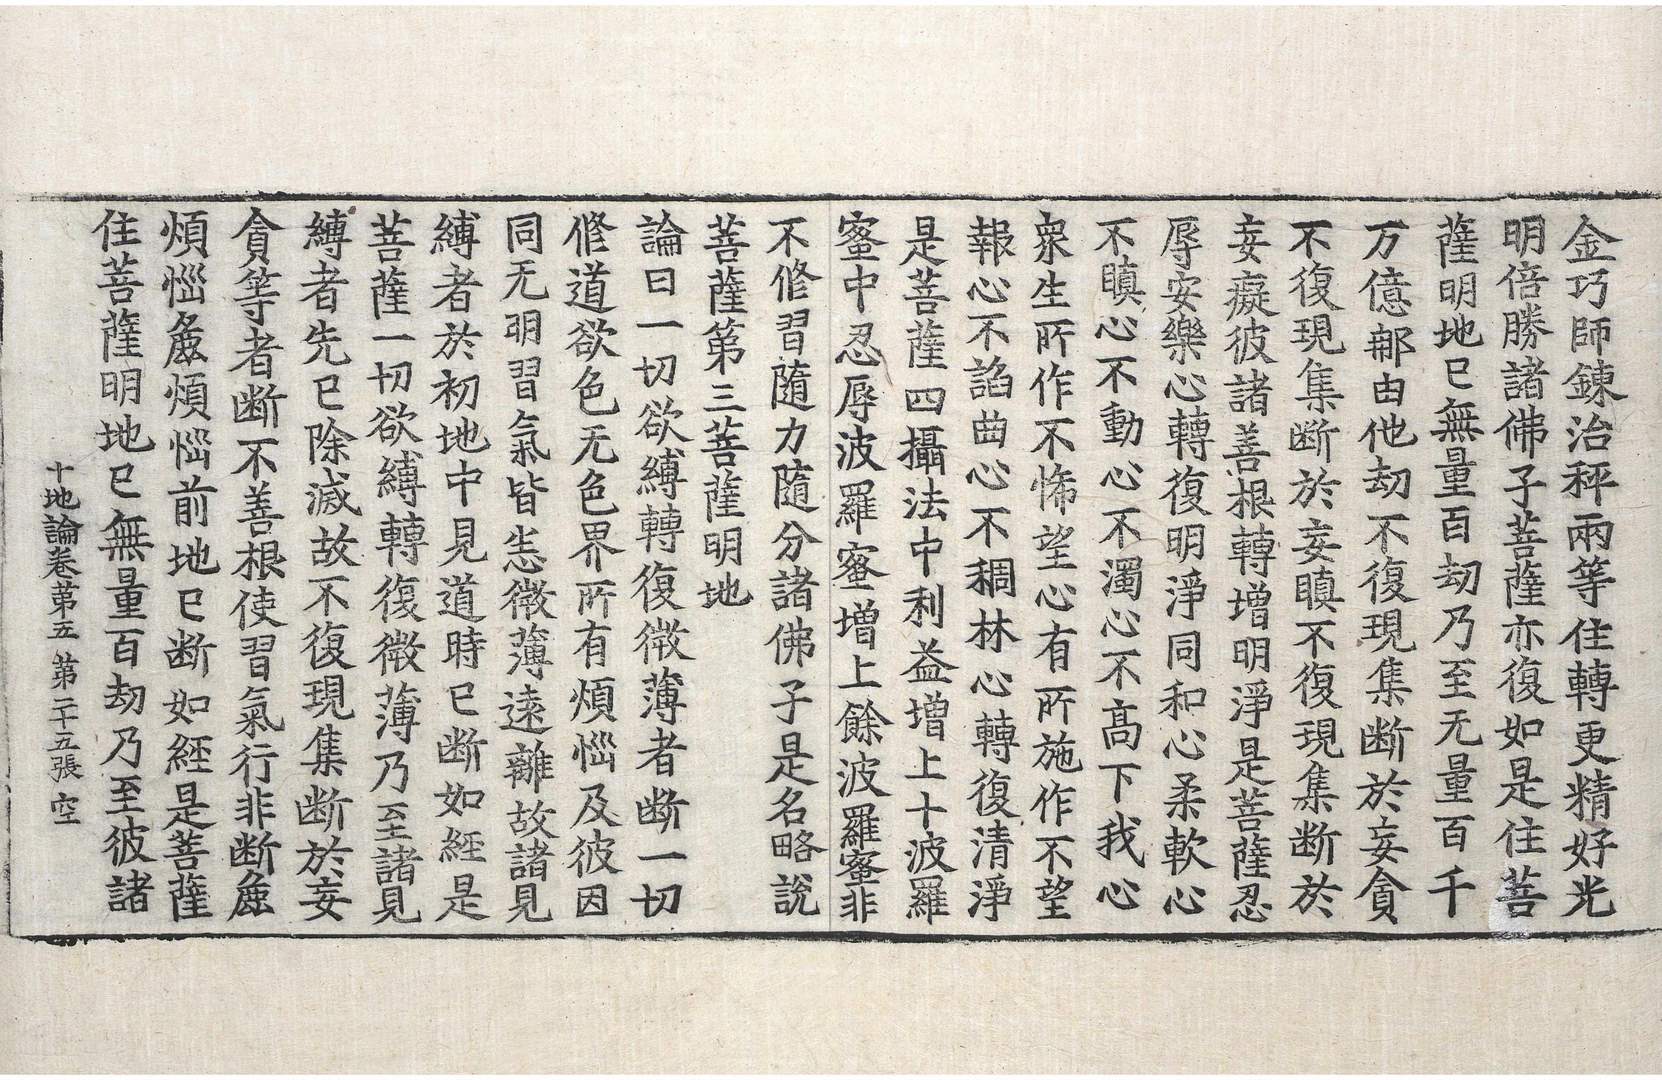 金巧師鍊治秤兩等住轉更精好光
明倍勝諸佛子菩薩亦復如是住菩
薩明地已無量百劫乃至无量百千
万億那由他劫不復現集断於妄貪
不復現集断於妄瞋不復現集断於
妄癡彼諸善根轉增明淨是菩薩忍
辱安樂心轉復明淨同和心柔軟心
不瞋心不動心不濁心不高下我心
衆生所作不悕望心有所施作不望
報心不諂曲心不稠林心轉復清淨
是菩薩四攝法中利益增上十波羅
蜜中忍辱波羅蜜增上餘波羅蜜非
不修習隨力隨分諸佛子是名略說
菩薩第三菩薩明地
論曰一切欲縛轉復微薄者断一切
修道欲色无色界所有煩惱及彼因
同无明習氣皆悉微薄遠離故諸見
縛者於初地中見道時已断如經是
菩薩一切欲縛轉復微薄乃至諸見
縛者先已除滅故不復現集断於妄
貪等者断不善根使習氣行非断麁
煩惱麁煩惱前地已断如經是菩薩
住菩薩明地已無量百劫乃至彼諸
十地論卷苐五 第二十五張 空